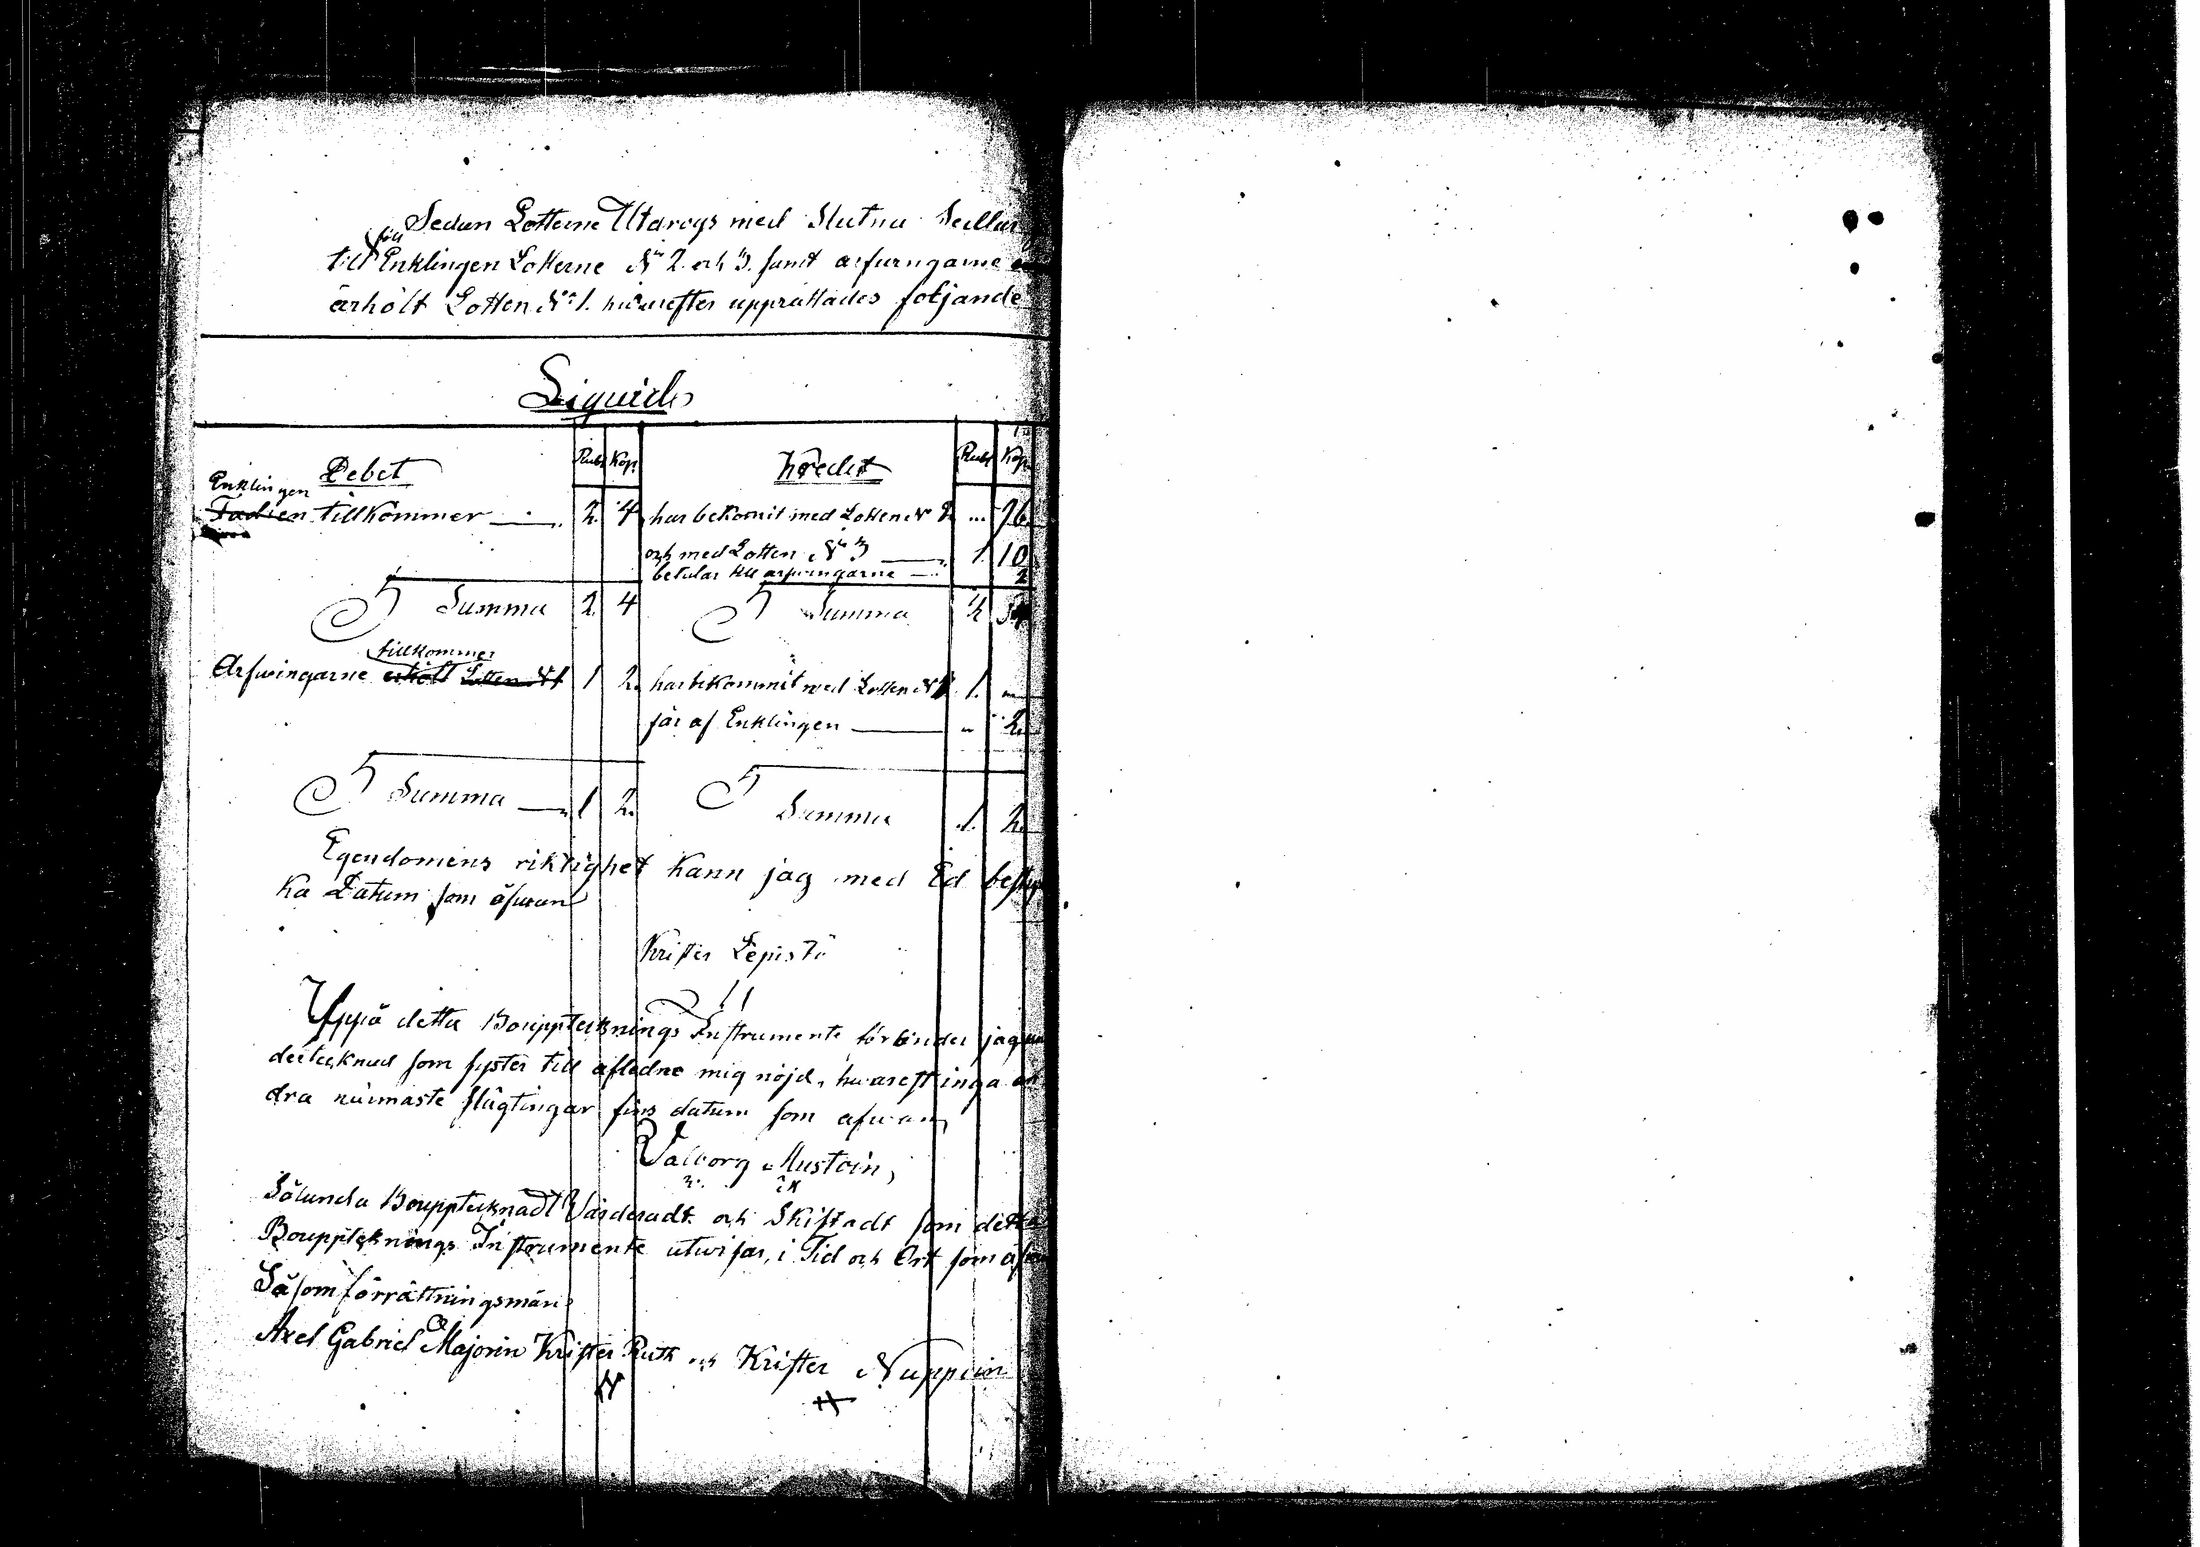 Sedan Lotterne Utdrogs med Slutna Sedlar
föll
till Enklingen Lotterne No 2. och 3. samt arfvingarne
ärhölt Lotten No 1. hvarefter upprättades följande
Liquid
Debet Rubl Kop. Kredit Rubl Kop.
Enklingen
Fadren tillkommer 2. 4 har bekomit med Lotten No 2. ... 96.
och med Lotten No 3 1. 10
betalar till arfvingarne 2
Summa 2. 4 Summa 2
tillkommer
Arfvingarne erhölt Lotten No 1 1 2. har bekommit med Lotten No 1. 1. "
får af Enklingen " 2.
Summa 1 2. Summa 1. 2.
Egendomens riktighet kann jag med Ed besty
ka Datum som åfvan
Krister Lepistö
Uppå detta Bouppteknings Instrumente förbinder jag un
derteknad som syster till aflidne mig nöjd, hvareft inga an
dra närmaste slägtingar fins datum som åfvan
Valborg Mustoin,
Sålunda Boupptecknadt Värderadt och Skiftadt som detta
Bouppteknings Instrumente utvisar, i Tid och Ort som åfvan
Såsom förrättningsmän
Axel Gabriel Majorin Krister Ruth och Krister Nuppoin